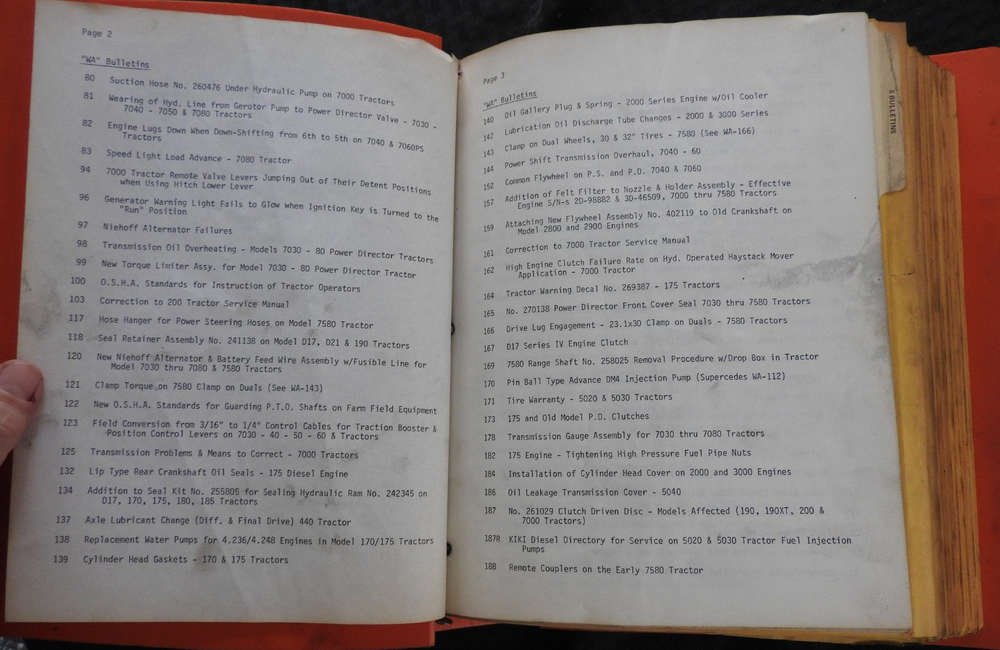 Page 2
"WA" Bulletins
80 Suction Hose No. 260476 Under Hydraulic Pump on 7000 Tractors
81 Wearing of Hyd. Line from Gerotor Pump to Power Director Valve - 7030 -
7040 - 7050 & 7080 Tractors
82 Engine Lugs Down When Down-Shifting from 6th to 5th on 7040 & 7060PS
Tractors
83 Speed Light Load Advance - 7080 Tractor
94 7000 Tractor Remote Valve Levers Jumping Out of Their Detent Positions
when Using Hitch Lower Lever
96 Generator Warning Light Fails to Glow when Ignition Key is Turned to the
"Run" Position
97 Niehoff Alternator Failures
98 Transmission Oil Overheating - Models 7030 - 80 Power Director Tractors
99 New Torque Limiter Assy. for Model 7030 - 80 Power Director Tractor
100 O.S.H.A. Standards for Instruction of Tractor Operators
103 Correction to 200 Tractor Service Manual
117 Hose Hanger for Power Steering Hoses on Model 7580 Tractor
118 Seal Retainer Assembly No. 241138 on Model D17, D21 & 190 Tractors
120 New Niehoff Alternator & Battery Feed Wire Assembly w/Fusible Line for
Model 7030 thru 7080 & 7580 Tractors
121 Clamp Torque on 7580 Clamp on Duals (See WA-143)
122 New O.S.H.A. Standards for Guarding P.T.O. Shafts on Farm Field Equipment
123 Field Conversion from 3/16" to 1/4" Control Cables for Traction Booster &
Position Control Levers on 7030 - 40 - 50 - 60 & Tractors
125 Transmission Problems & Means to Correct - 7000 Tractors
132 Lip Type Rear Crankshaft Oil Seals - 175 Diesel Engine
134 Addition to Seal Kit No. 255805 for Sealing Hydraulic Ram No. 242345 on
D17, 170, 175, 180, 185 Tractors
137 Axle Lubricant Change (Diff. & Final Drive) 440 Tractor
138 Replacement Water Pumps for 4.236/4.248 Engines in Model 170/175 Tractors
139 Cylinder Head Gaskets - 170 & 175 Tractors
Page 3
"WA" Bulletins
140 Oil Gallery Plug & Spring - 2000 Series Engine w/Oil Cooler
142 Lubrication Oil Discharge Tube Changes - 2000 & 3000 Series
143 Clamp on Dual Wheels, 30 & 32" Tires - 7580 (See WA-166)
144 Power Shift Transmission Overhaul, 7040 - 60
152 Common Flywheel on P.S. and P.D. 7040 & 7060
157 Addition of Felt Filter to Nozzle & Holder Assembly - Effective
Engine S/N-s 2D-98882 & 3D-46509, 7000 thru 7580 Tractors
159 Attaching New Flywheel Assembly No. 402119 to Old Crankshaft on
Model 2800 and 2900 Engines
161 Correction to 7000 Tractor Service Manual
162 High Engine Clutch Failure Rate on Hyd. Operated Haystack Mover
Application - 7000 Tractor
164 Tractor Warning Decal No. 269387 - 175 Tractors
165 No. 270138 Power Director Front Cover Seal 7030 thru 7580 Tractors
166 Drive Lug Engagement - 23.1x30 Clamp on Duals - 7580 Tractors
167 D17 Series IV Engine Clutch
169 7580 Range Shaft No. 258025 Removal Procedure w/Drop Box in Tractor
170 Pin Ball Type Advance DM4 Injection Pump (Supercedes WA-112)
171 Tire Warranty - 5020 & 5030 Tractors
173 175 and Old Model P.D. Clutches
178 Transmission Gauge Assembly for 7030 thru 7080 Tractors
182 175 Engine - Tightening High Pressure Fuel Pipe Nuts
184 Installation of Cylinder Head Cover on 2000 and 3000 Engines
186 Oil Leakage Transmission Cover - 5040
187 No. 261029 Clutch Driven Disc - Models Affected (190, 190XT, 200 &
7000 Tractors)
187R KIKI Diesel Directory for Service on 5020 & 5030 Tractor Fuel Injection
Pumps
188 Remote Couplers on the Early 7580 Tractor
BULLETINS